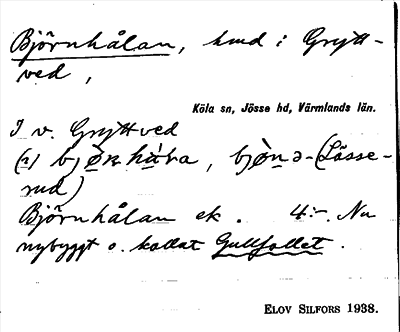 Björnhålan, hmd i Grytt-
ved,
Köla sn, Jösse hd, Värmlands län.
I v. Gryttved
(a) bjǫ̀ɴhåla, bjǫ̀nə- (Lösse-
rud)
Björnhålan ek. 4:-. Nu
nybyggt o. kallat Gullfallet.
ELOV SILFORS 1938.